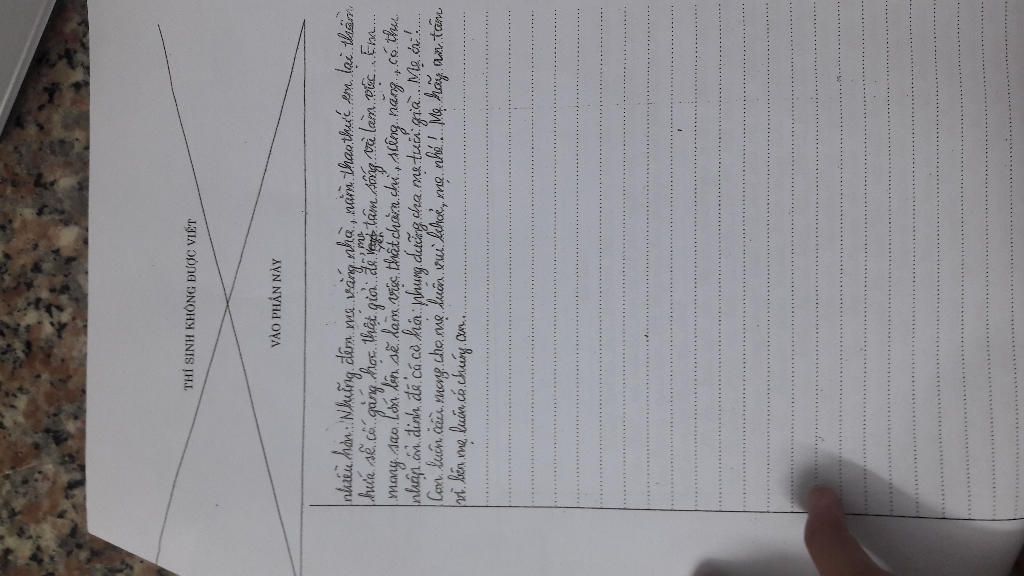 THÍ SINH KHÔNG ĐƯỢC VIẾT
VÀO PHẦN NÀY
nhiều hơn. Những đêm mẹ vắng nhà, nằm thao thức em lại thầm
hứa sẽ cố gắng học thật giỏi để mẹ yên tâm sống và làm việc. Em
mong sao lớn lên sẽ làm việc thật chăm chỉ, siêng năng, có thu
nhập ổn định để có cơ hội phụng dưỡng cha mẹ tuổi già. Mẹ ơi!
Con luôn cầu mong cho mẹ luôn vui khoẻ, mẹ nhé! Mẹ hãy an tâm
vì bên mẹ luôn có chúng con.